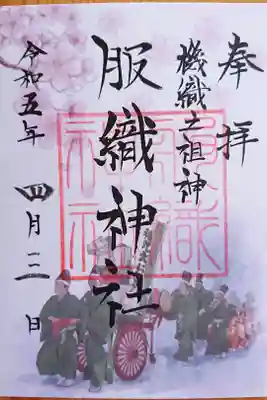 奉拝
機織之祖神
服織神社
令和五年
四月 日
服織
神社